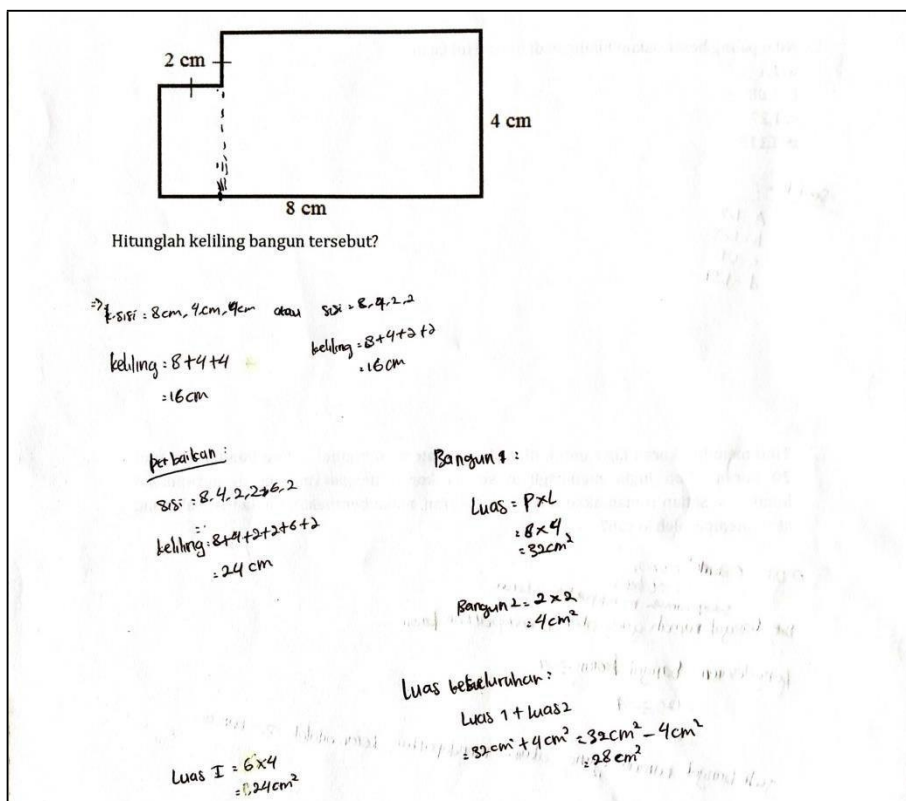 2 cm
4 cm
8 cm
Hitunglah keliling bangun tersebut?
sisi = 8cm, 4cm, 4cm atau sisi = 8,4,2,2
keliling = 8+4+4
= 16 cm
keliling = 8+4+2+2
= 16 cm
perbaikan :
sisi = 8, 4, 2, 2, 6, 2
keliling = 8+4+2+2+6+2
= 24 cm
Bangun 1 :
Luas = P x L
= 8 x 4
= 32 cm²
Bangun 2 = 2 x 2
= 4 cm²
Luas keseluruhan :
Luas 1 + Luas 2
= 32 cm² + 4 cm² = 32 cm² - 4 cm²
= 28 cm²
Luas I = 6 x 4
= 24 cm²